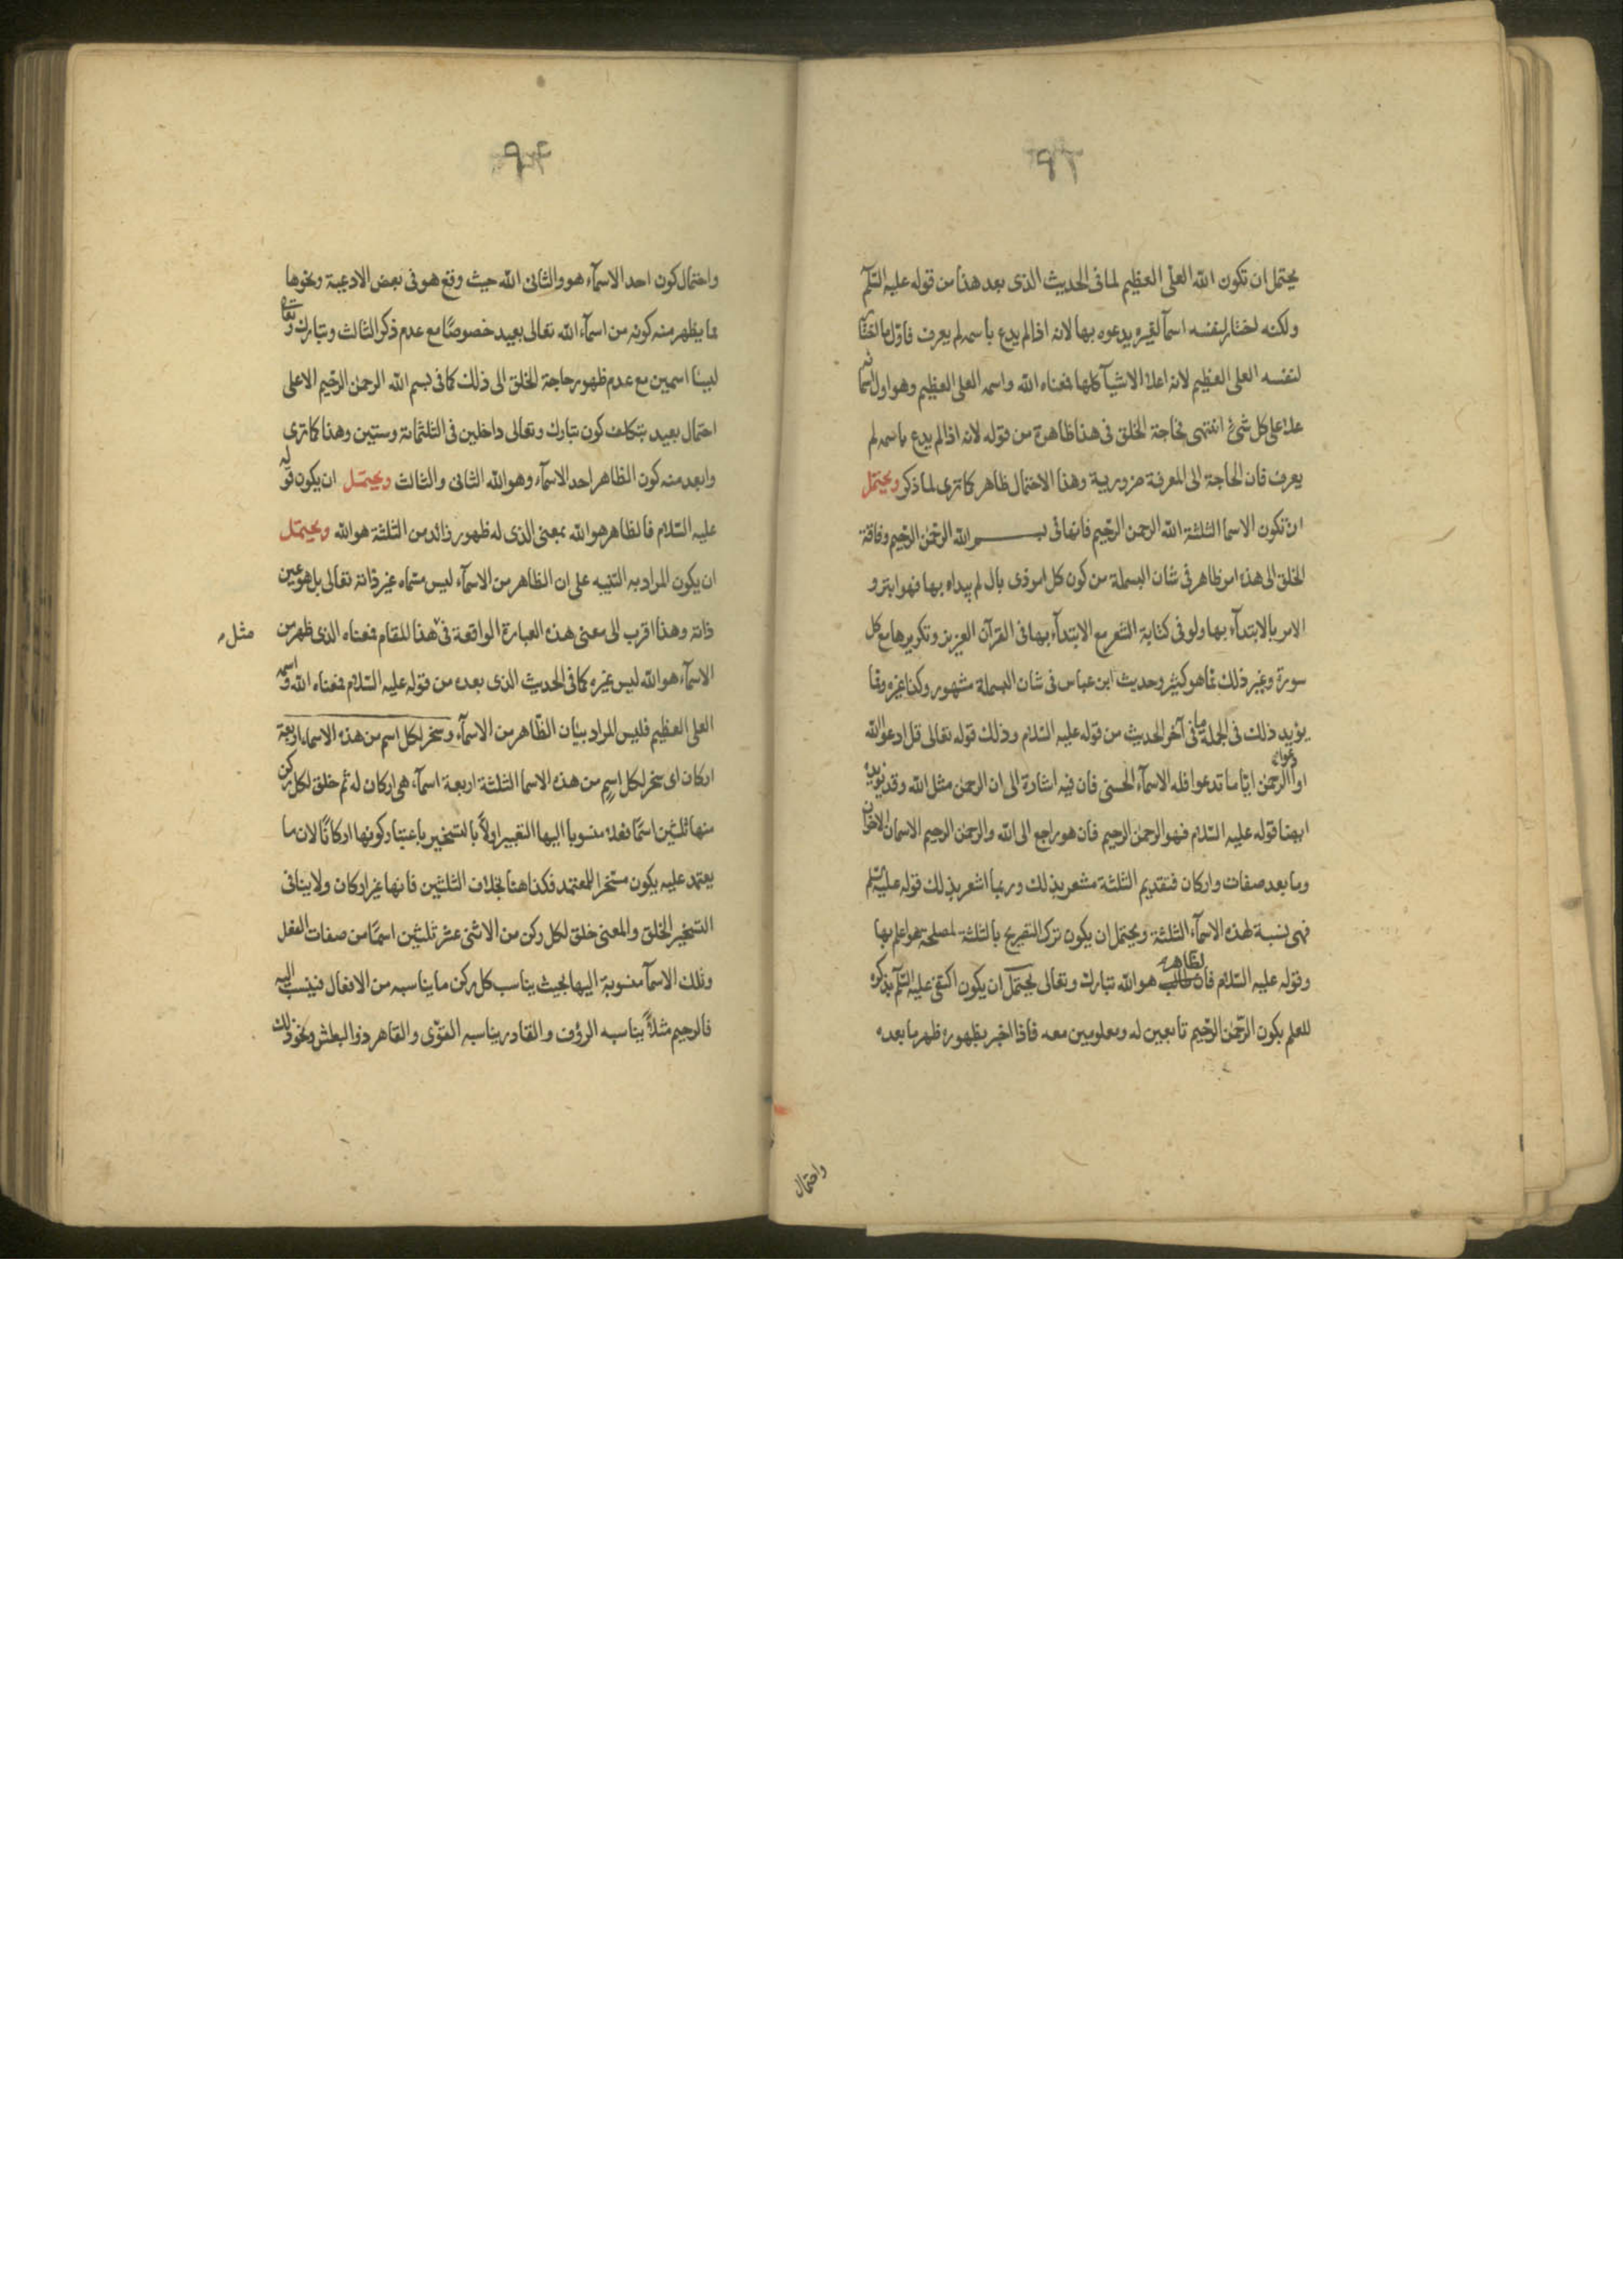 ٩٢
يحتمل ان تكون الله العلى العظيم لما فى الحديث الذى بعد هذا من قوله عليه السلم
ولكنه اختار لنفسه اسمآ لغيره يدعوه بها لانه اذا لم يدع باسمه لم يعرف فاول ما اختار
لنفسه العلى العظيم لانه اعلا الاشيآ كلها فمعناه الله واسمه العلى العظيم وهو اول اسمائه
علا على كل شئ انتهى فحاجة الخلق فى هذا ظاهرة من قوله لانه اذا لم يدع باسمه لم
يعرف فان الحاجة الى المعرفة ضرورية وهذا الاحتمال ظاهر كما ترى لما ذكر ويحتمل
ان تكون الاسما الثلثة الله الرحمن الرحيم فانها فى بسم الله الرحمن الرحيم وفاقة
الخلق الى هذه امر ظاهر فى شان البسملة من كون كل امر ذى بال لم يبداء بها فهو ابتر و
الامر بالابتدآء بها ولو فى كتابة الشعر مع الابتدآء بها فى القرآن العزيز وتكريرها مع كل
سورة وغير ذلك مما هو كثير وحديث ابن عباس فى شان البسملة مشهور وكذا غيره ومما
يؤيد ذلك فى الجملة ما فى آخر الحديث من قوله عليه السلام وذلك قوله تعالى قل ادعوا الله
او ادعوا الرحمن ايا ما تدعوا فله الاسمآء الحسنى فان فيه اشارة الى ان الرحمن مثل الله وقد يؤيده
ايضا قوله عليه السلام فهو الرحمن الرحيم فان هو راجع الى الله والرحمن الرحيم الاسمان الاخران
وما بعد صفات واركان فتقديم الثلثة مشعر بذلك وربما اشعر بذلك قوله عليه السلم
فهى نسبة لهذه الاسمآء الثلثة ويحتمل ان يكون ترك التصريح بالثلثة لمصلحة هو اعلم بها
وقوله عليه السلام فالظاهر هو الله تبارك وتعالى يحتمل ان يكون اكتفى عليه السلم بذكره
للعلم بكون الرحمن الرحيم تابعين له ومعلومين معه فاذا اخبر بظهوره ظهر ما بعده
واحتمال
واحتمال كون احد الاسمآء هو والثانى الله حيث وقع هو فى بعض الادعية ونحوها
مما يظهر منه كونه من اسمآء الله تعالى بعيد خصوصًا مع عدم ذكر الثالث وتبارك وتعالى
ليسا اسمين مع عدم ظهور حاجة الخلق الى ذلك كما فى بسم الله الرحمن الرحيم الاعلى
احتمال بعيد بتكلف كون تبارك وتعالى داخلين فى الثلثمائة وستين وهذا كما ترى
وابعد منه كون الظاهر احد الاسمآء وهو الله الثانى والثالث ويحتمل ان يكون قوله
عليه السلام فالظاهر هو الله بمعنى الذى له ظهور زائد من الثلثة هو الله ويحتمل
ان يكون المراد به التنبيه على ان الظاهر من الاسمآء ليس مسماه غير ذاته تعالى بل هو عين
ذاته وهذا اقرب الى معنى هذه العبارة الواقعة فى هذا المقام فمعناه الذى ظهر من
مثل
الاسمآء هو الله ليس غيره كما فى الحديث الذى بعده من قوله عليه السلام فمعناه الله واسمه
العلى العظيم فليس المراد بيان الظاهر من الاسمآء وسخر لكل اسم من هذه الاسماء اربعة
اركان اى سخر لكل اسمٍ من هذه الاسما الثلثة اربعة اسمآء هى اركان له ثم خلق لكل ركن
منها ثلثين اسمًا فعلا منسوبا اليها التعبير اولاً بالتسخير باعتبار كونها اركانًا لان ما
يعتمد عليه يكون مسخرا للمعتمد فكذا هنا بخلاف الثلثين فانها غير اركان ولا ينافى
التسخير الخلق والمعنى خلق لكل ركن من الاثنى عشر ثلثين اسمًا من صفات الفعل
وتلك الاسمآ منسوبة اليها بحيث يناسب كل ركن ما يناسبه من الافعال فينسب اليه
فالرحيم مثلاً يناسبه الرؤف والقادر يناسبه القوّى والقاهر ذو البطش ونحو ذلك